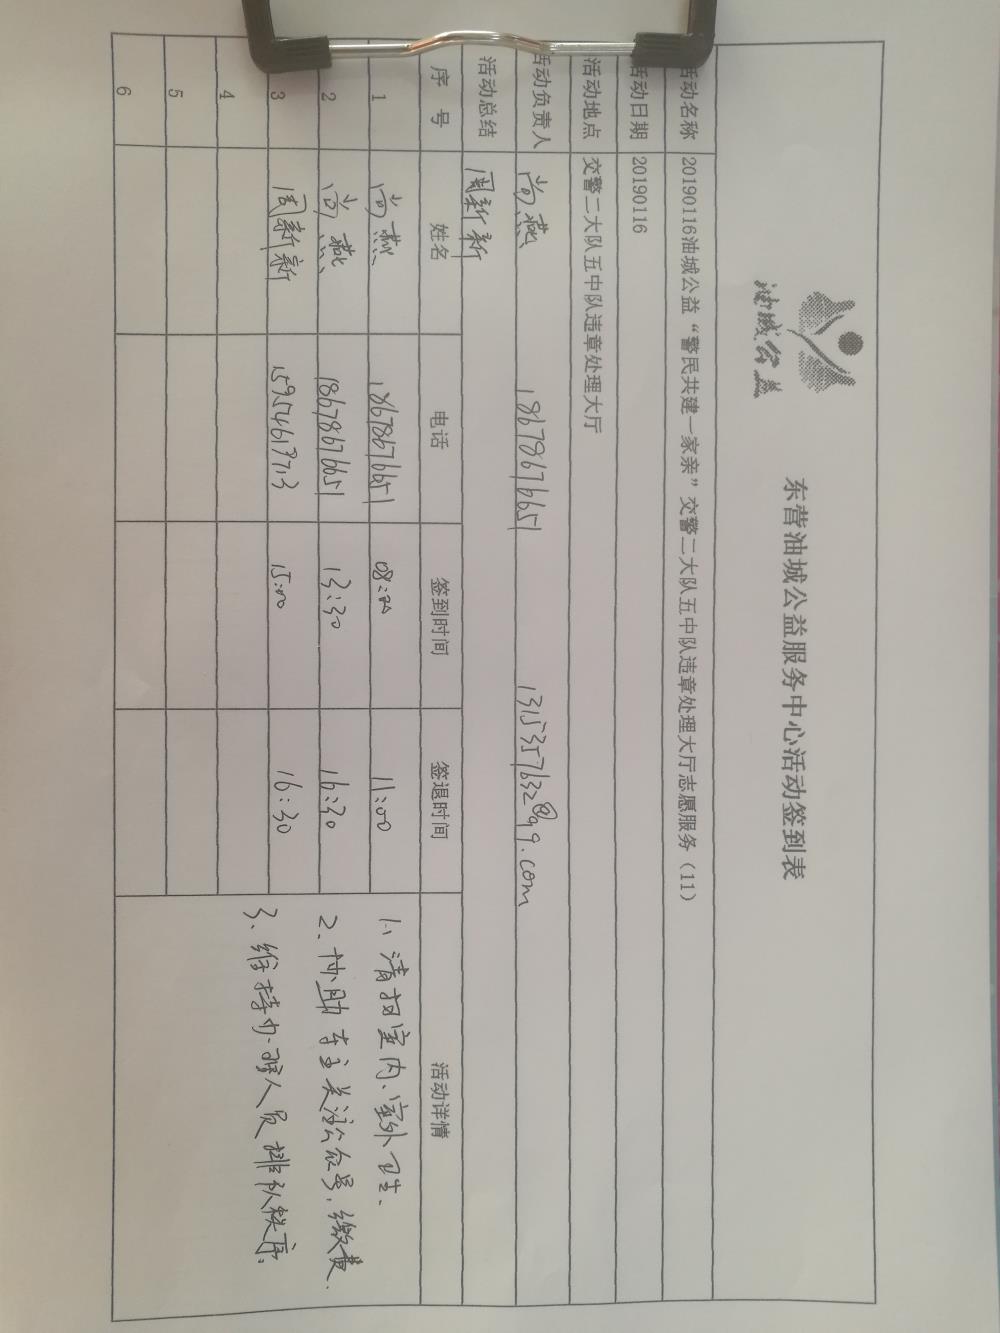 油城公益
东营油城公益服务中心活动签到表
活动名称 20190116油城公益“警民共建一家亲”交警二大队五中队违章处理大厅志愿服务（11）
活动日期 20190116
活动地点 交警二大队五中队违章处理大厅
活动负责人 尚燕 18678676651 1315357632@qq.com
活动总结 周新新
序号 姓名 电话 签到时间 签退时间 活动详情
1 尚燕 18678676651 08:30 11:00 1、清扫室内、室外卫生.
2 尚燕 18678676651 13:30 16:30 2、协助车主关注公众号,缴费.
3 周新新 15954613713 15:00 16:30 3、维持办理人员排队秩序.
4
5
6